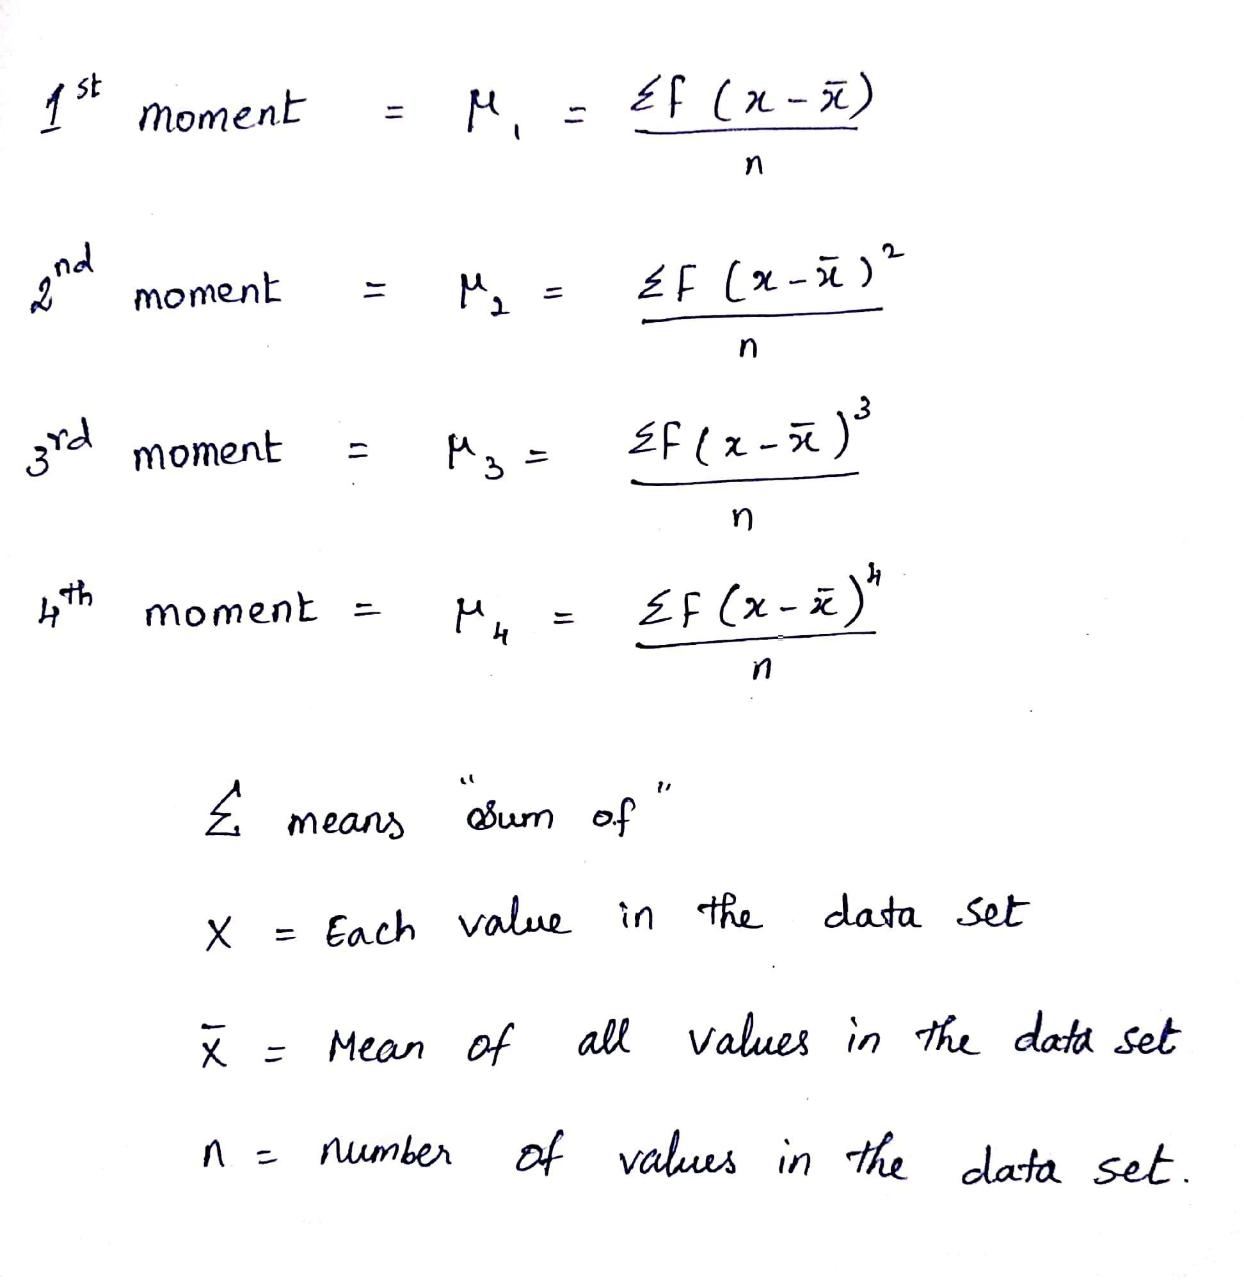 1st moment = μ₁ = Σf (x - x̄) / n
2nd moment = μ₂ = Σf (x - x̄)² / n
3rd moment = μ₃ = Σf (x - x̄)³ / n
4th moment = μ₄ = Σf (x - x̄)⁴ / n
Σ means "sum of"
x = Each value in the data set
x̄ = Mean of all values in the data set
n = number of values in the data set.